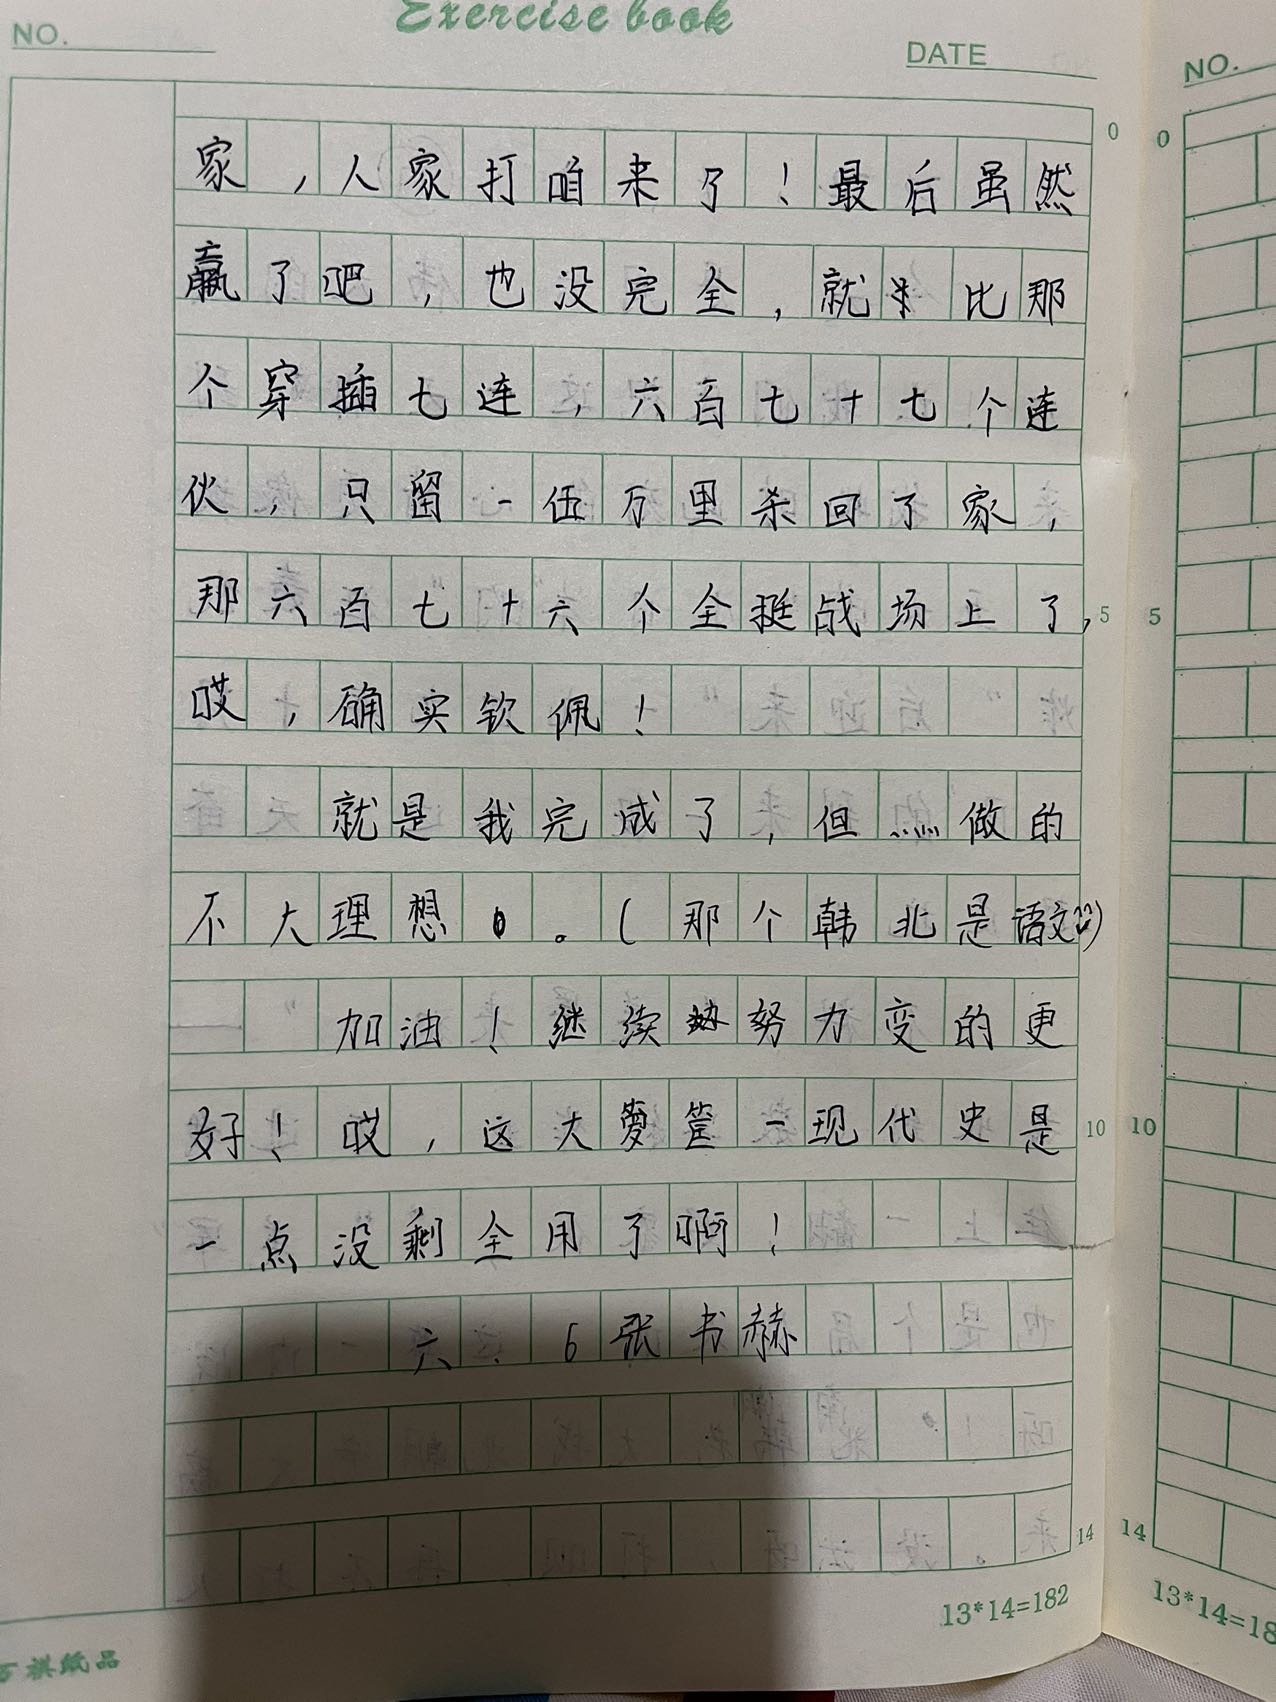 Exercise book
NO.
DATE
NO.
家，人家打咱来了！最后虽然
赢了吧，也没完全，就 比那
个穿插七连，六百七十七个连
伙，只留一伍万里杀回了家，
那六百七十六个全挺战场上了，
哎，确实钦佩！
就是我完成了，但 做的
不大理想。（那个韩北是语文）
加油！继续努力变的更
好！哎，这大箩筐一现代史是
一点没剩全用了啊！
六．6张书赫
0 0
5 5
10 10
14 14
13*14=182
13*14=18
祺纸品